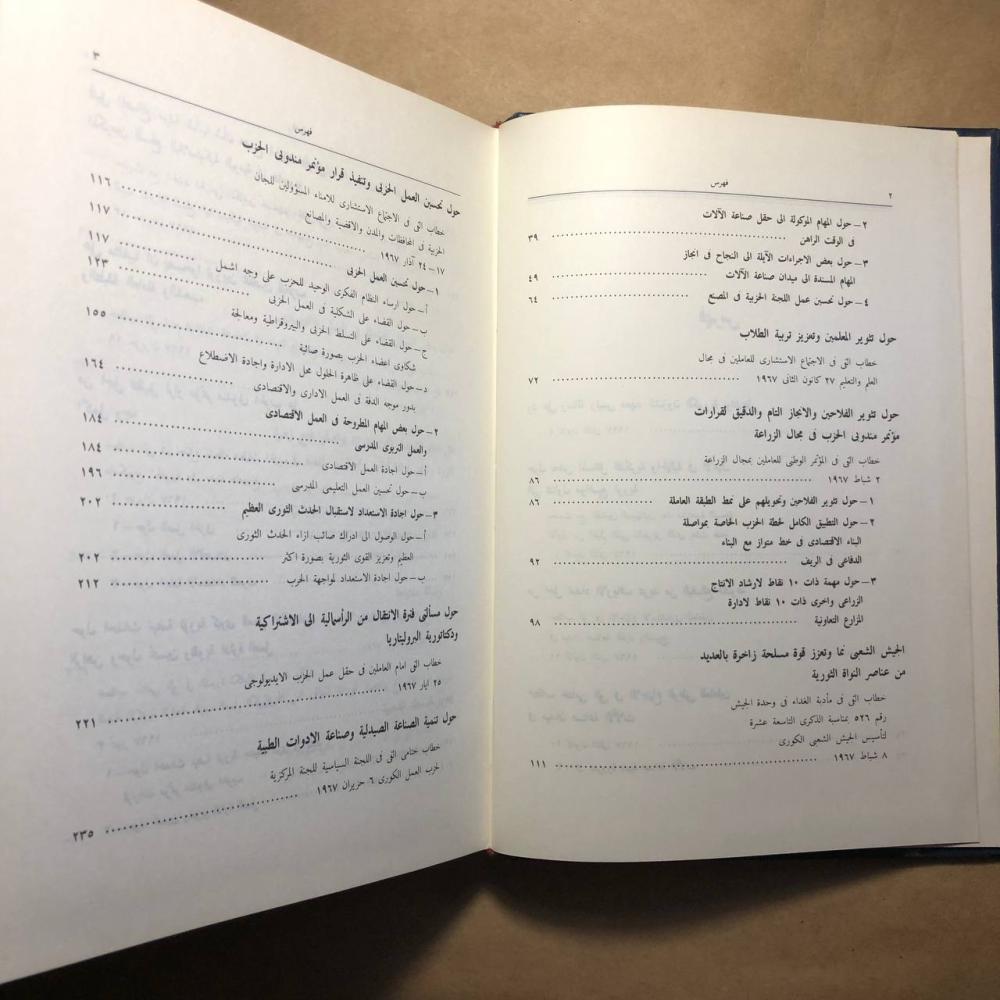 ٢
فهرس
٢ – حول المهام الموكولة الى حقل صناعة الآلات
فى الوقت الراهن ٣٩
٣ – حول بعض الاجراءات الآيلة الى النجاح فى انجاز
المهام المسندة الى ميدان صناعة الآلات ٤٩
٤ – حول تحسين عمل اللجنة الحزبية فى المصنع ٦٤
حول تثوير المعلمين وتعزيز تربية الطلاب
خطاب القى فى الاجتماع الاستشارى للعاملين فى مجال
العلم والتعليم ٢٧ كانون الثانى ١٩٦٧ ٧٢
حول تثوير الفلاحين والانجاز التام والدقيق لقرارات
مؤتمر مندوبى الحزب فى مجال الزراعة
خطاب القى فى المؤتمر الوطنى للعاملين بمجال الزراعة
٢ شباط ١٩٦٧ ٨٦
١ – حول تثوير الفلاحين وتحويلهم على نمط الطبقة العاملة ٨٦
٢ – حول التطبيق الكامل لخطة الحزب الخاصة بمواصلة
البناء الاقتصادى فى خط متواز مع البناء
الدفاعى فى الريف ٩٢
٣ – حول مهمة ذات ١٠ نقاط لارشاد الانتاج
الزراعى واخرى ذات ١٠ نقاط لادارة
المزارع التعاونية ٩٨
الجيش الشعبى نما وتعزز قوة مسلحة زاخرة بالعديد
من عناصر النواة الثورية
خطاب القى فى مأدبة الغداء فى وحدة الجيش
رقم ٥٢٦ بمناسبة الذكرى التاسعة عشرة
لتأسيس الجيش الشعبى الكورى
٨ شباط ١٩٦٧ ١١١
٣
فهرس
حول تحسين العمل الحزبى وتنفيذ قرار مؤتمر مندوبى الحزب
خطاب القى فى الاجتماع الاستشارى للامناء المسؤولين للجان
الحزبية فى المحافظات والمدن والاقضية والمصانع
١٧ – ٢٤ آذار ١٩٦٧ ١١٦
١ – حول تحسين العمل الحزبى ١١٧
أ – حول ارساء النظام الفكرى الوحيد للحزب على وجه اشمل ١١٧
ب – حول القضاء على الشكلية فى العمل الحزبى ١٢٣
ج – حول القضاء على التسلط الحزبى والبيروقراطية ومعالجة
شكاوى اعضاء الحزب بصورة صائبة ١٥٥
د – حول القضاء على ظاهرة الحلول محل الادارة واجادة الاضطلاع
بدور موجه الدفة فى العمل الادارى والاقتصادى ١٦٤
٢ – حول بعض المهام المطروحة فى العمل الاقتصادى
والعمل التربوى المدرسى ١٨٤
أ – حول اجادة العمل الاقتصادى ١٨٤
ب – حول تحسين العمل التعليمى المدرسى ١٩٦
٣ – حول اجادة الاستعداد لاستقبال الحدث الثورى العظيم ٢٠٢
أ – حول الوصول الى ادراك صائب ازاء الحدث الثورى
العظيم وتعزيز القوى الثورية بصورة اكثر ٢٠٢
ب – حول اجادة الاستعداد لمواجهة الحرب ٢١٢
حول مسألتى فترة الانتقال من الرأسمالية الى الاشتراكية
ودكتاتورية البروليتاريا
خطاب القى امام العاملين فى حقل عمل الحزب الايديولوجى
٢٥ ايار ١٩٦٧ ٢٢١
حول تنمية الصناعة الصيدلية وصناعة الادوات الطبية
خطاب ختامى القى فى اللجنة السياسية للجنة المركزية
لحزب العمل الكورى ٦ حزيران ١٩٦٧ ٢٣٥